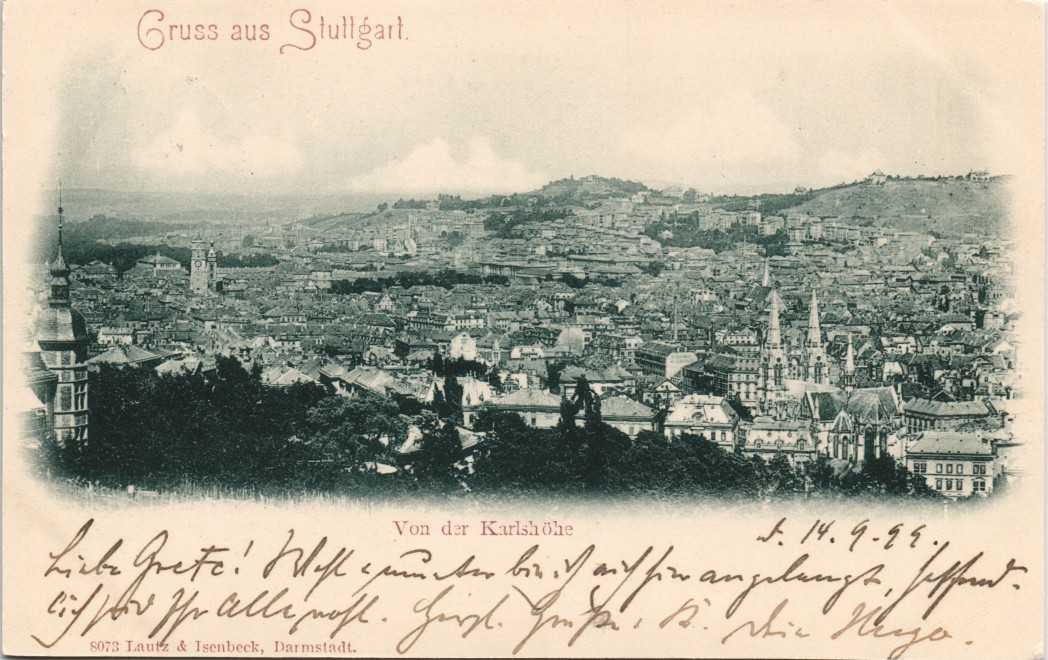 Gruss aus Stuttgart.
Von der Karlshöhe
d. 14.9.99.
Liebe Grete! Wohl u. munter bin ich auch hier angelangt, hoffent-
lich seid Ihr Alle wohl. Herzl. Grüße, K. Dein Hugo.
8073 Lautz & Isenbeck, Darmstadt.